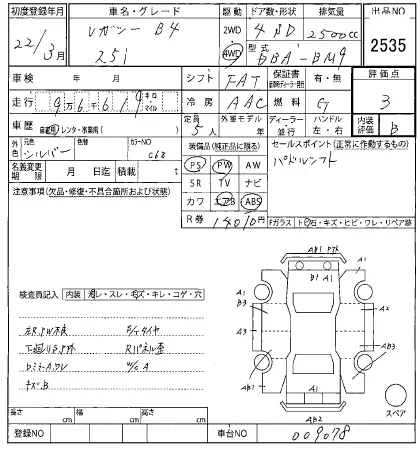 初度登録年月 車名・グレード 駆動 ドア数・形状 排気量 出品NO
22/3月 レガシー B4 2WD 4 SD 2500cc 2535
2.5i 4WD 型式 DBA-BM9
車検 年 月 シフト FAT 保証書 有・無 評価点
走行 9万6千619 キロ マイル 冷房 AAC 燃料 G 3
車歴 自家用・レンタ・事業用( ) 定員 5人 外車モデル 年 ディーラー・並行 ハンドル 左・右 内装評価 B
外色 シルバー 元色 色替 カラーNO C68 装備品(純正品に限る) セールスポイント(正常に作動するもの)
名義変更期限 月 日迄 積載 t PS PW AW パドルシフト
注意事項(欠品・修復・不具合箇所および状態) SR TV ナビ
カワ エアB ABS
R券 14010円 Fガラス トビ石・キズ・ヒビ・ワレ・リペア跡
AB1
B1 A1
A1
B3
A2
A3
AB3
A1
A1
AB2
スペア
検査員記入 内装 汚レ・スレ・キズ・キレ・コゲ・穴
左R,PW不良
Rパネル歪
キズB
長さ cm 幅 cm 高さ cm
登録NO 車台NO 009078